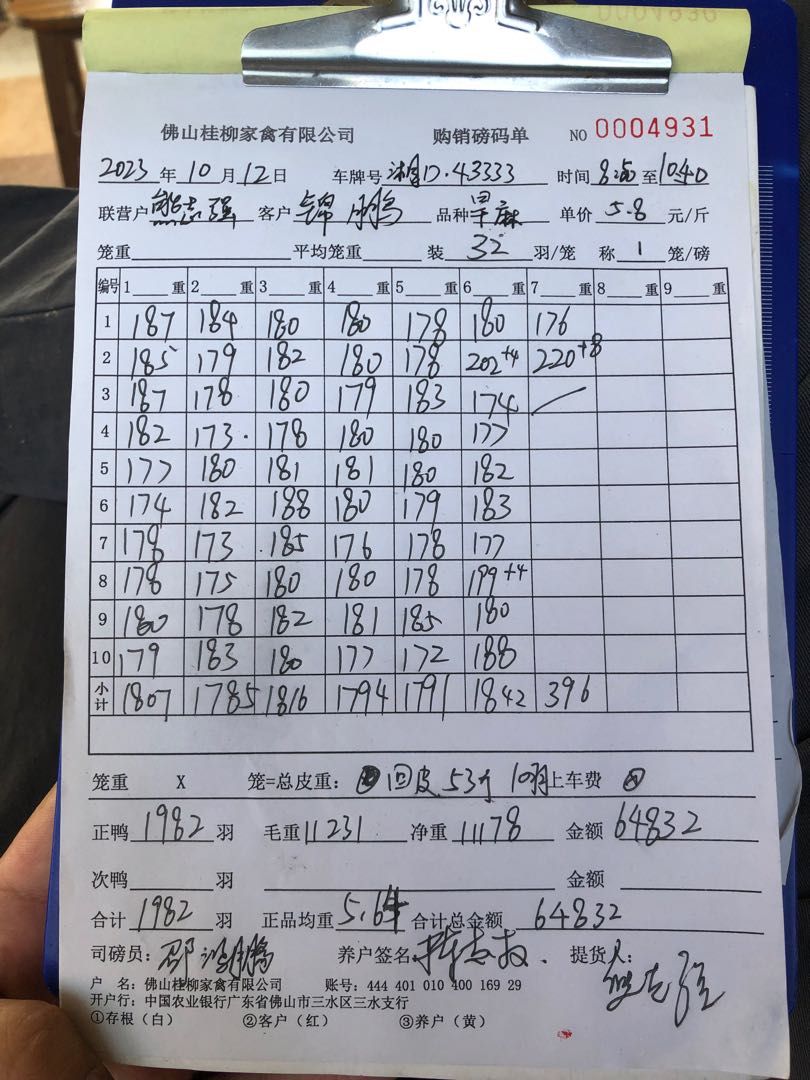 佛山桂柳家禽有限公司 购销磅码单 NO 0004931
2023 年 10 月 12 日 车牌号 湘D·43333 时间 8:50 至 10:40
联营户 熊志强 客户 锦鹏 品种 单价 5.8 元/斤
笼重 平均笼重 装 32 羽/笼 称 1 笼/磅
编号 1 重 2 重 3 重 4 重 5 重 6 重 7 重 8 重 9 重
1 187 184 180 180 178 180 176
2 185 179 182 180 178 202+4 220+8
3 187 178 180 179 183 174
4 182 173. 178 180 180 177
5 177 180 181 181 180 182
6 174 182 188 180 179 183
7 178 173 185 176 178 177
8 178 175 180 180 178 199+4
9 180 178 182 181 185 180
10 179 183 180 177 172 188
小计 1807 1785 1816 1794 1791 1842 396
笼重 X 笼=总皮重: 回皮 53斤 上车费
正鸭 1982 羽 毛重 11231 净重 11178 金额 64832
次鸭 羽 金额
合计 1982 羽 正品均重 5.64 合计总金额 64832
司磅员: 养户签名 提货人:
户 名: 佛山桂柳家禽有限公司 账号: 444 401 010 400 169 29
开户行: 中国农业银行广东省佛山市三水区三水支行
①存根(白) ②客户(红) ③养户(黄)